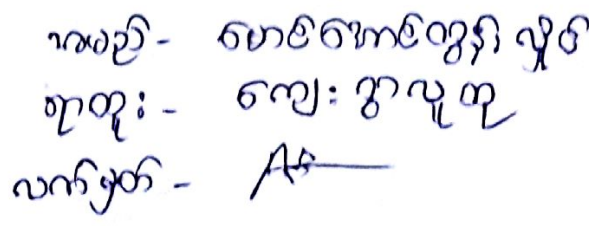 အမည် - မောင်အောင်ထွန်းလှိုင်
ရာထူး - ကျေးရွာလူထု
လက်မှတ် -